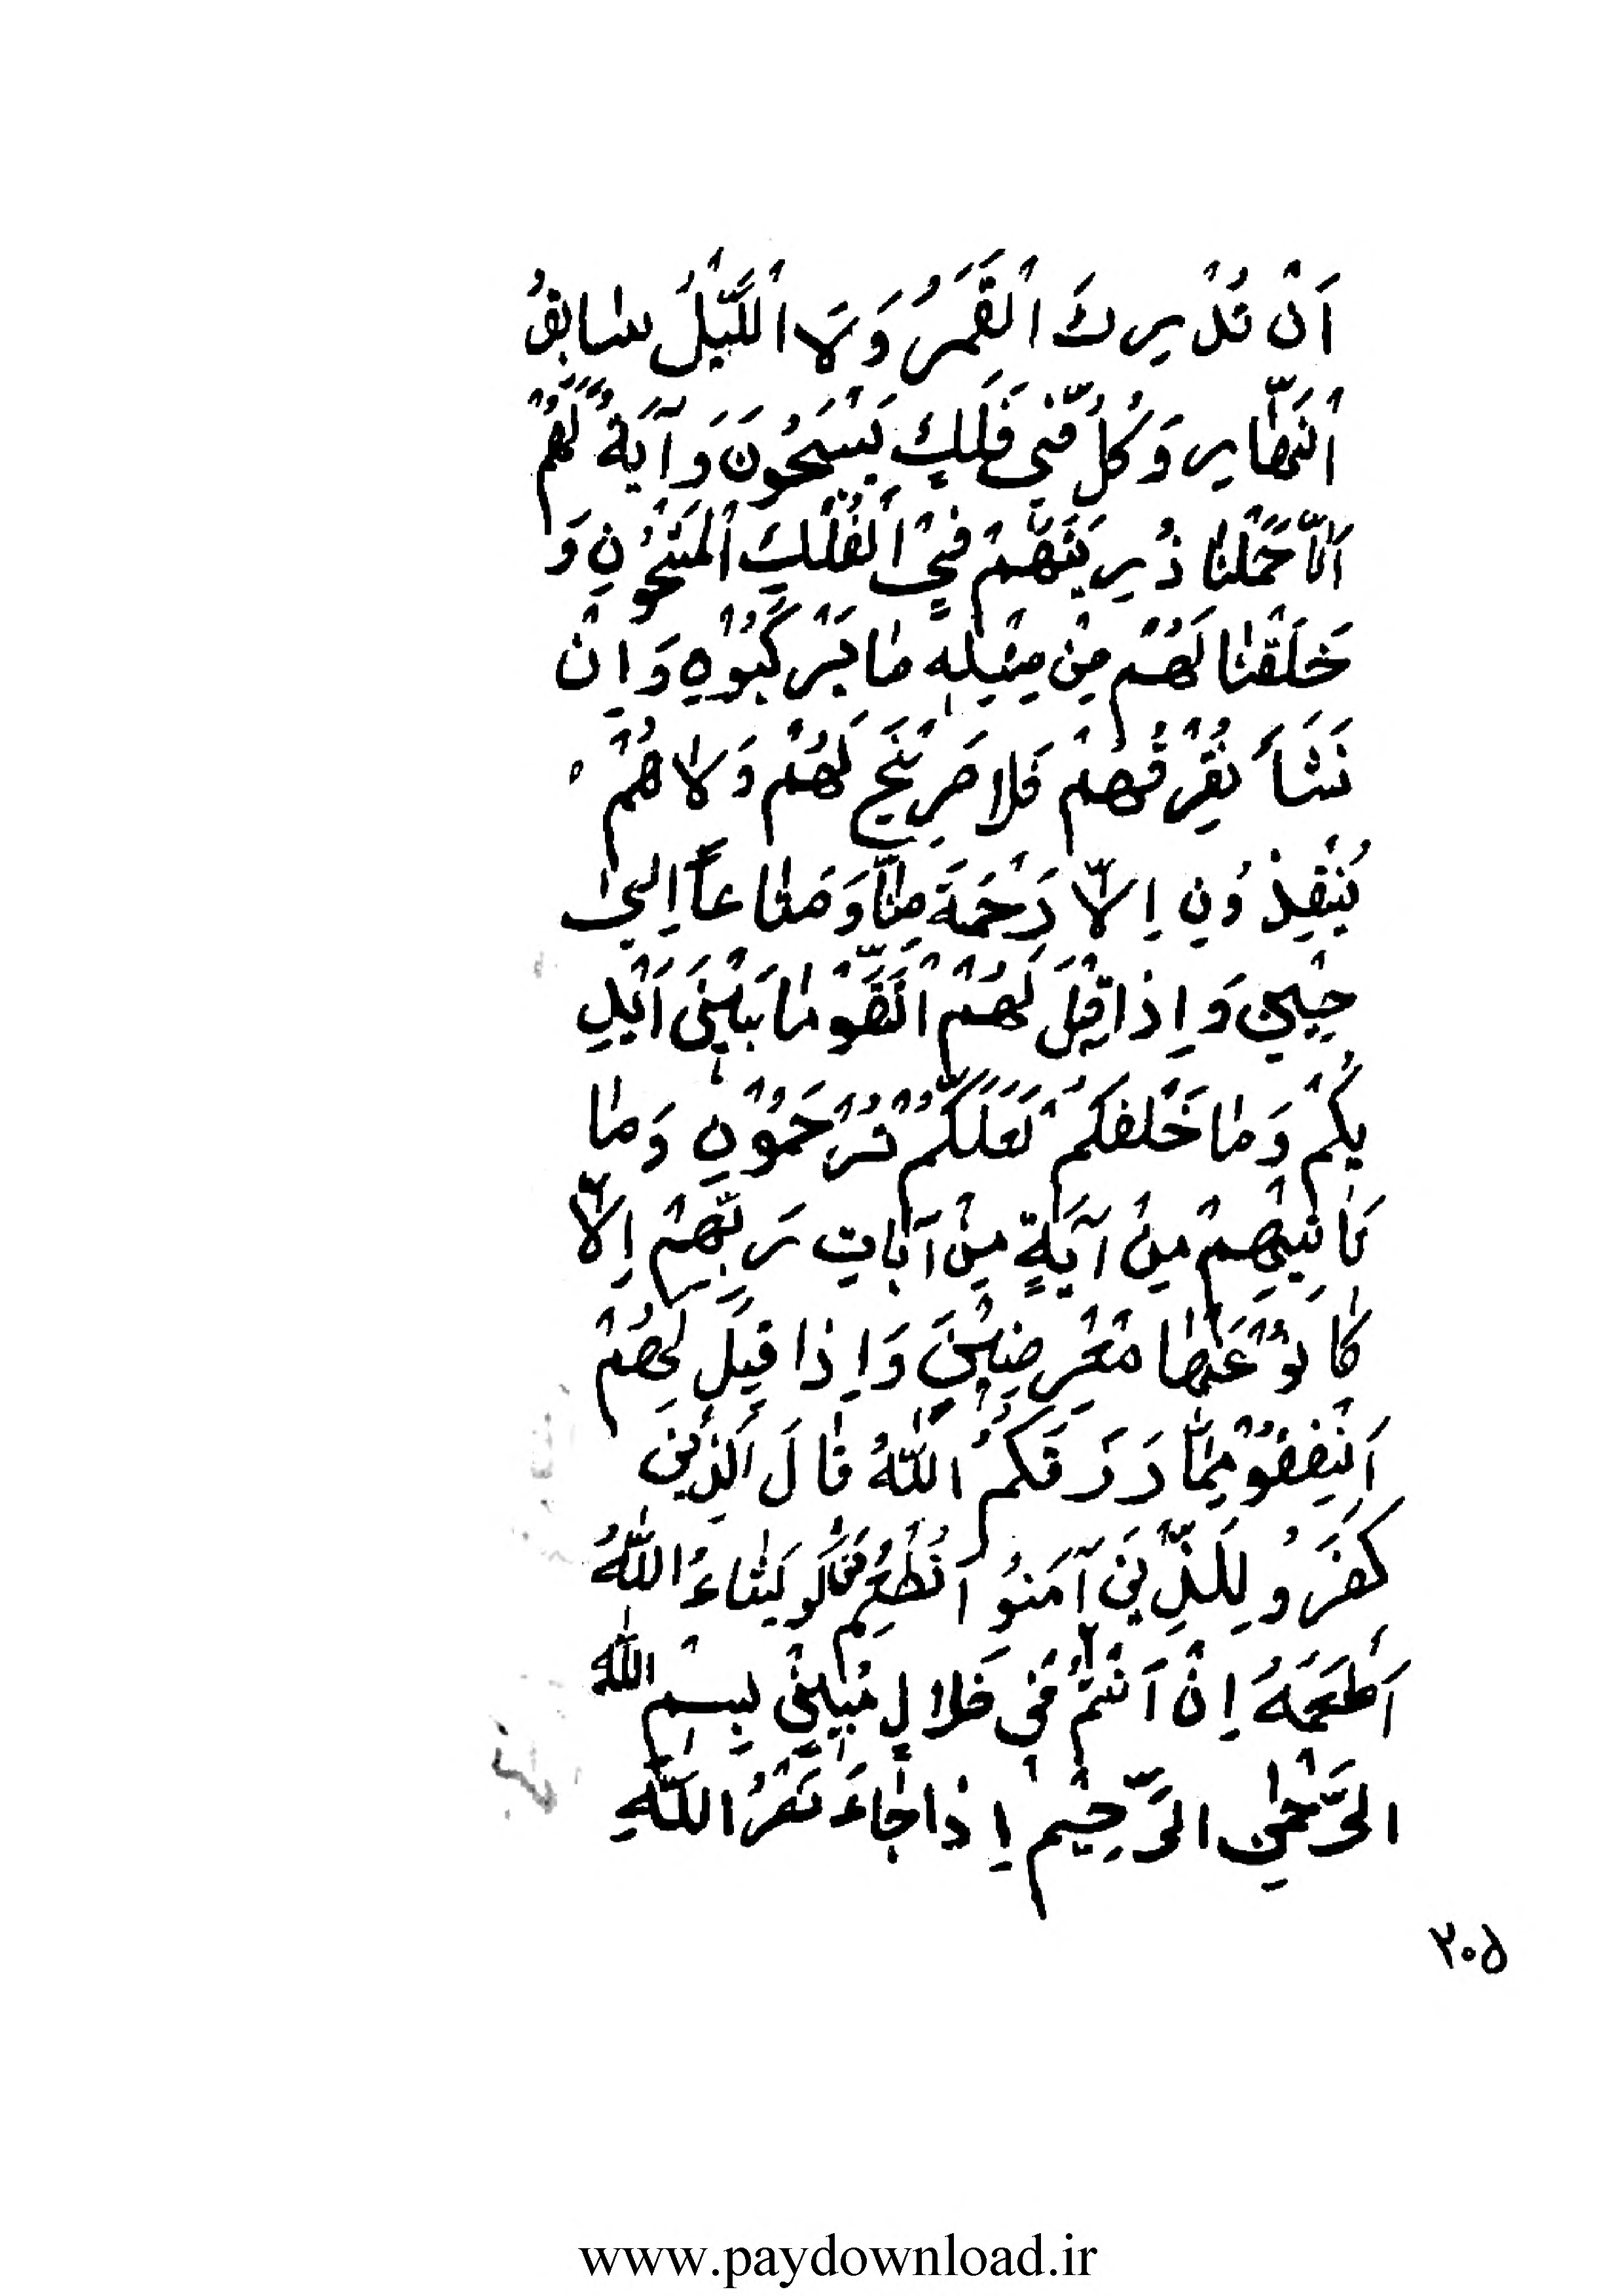 اَنْ تُدْرِكَ الْقَمَرُ وَلَا اللَّيْلُ سٰابِقُ
اَلنَّهٰارِ وَكُلٌّ فّي فَلَكٍ يَسْبَحُونَ وَآيَةٌ لَهُمْ
اَنّاٰ حَمَلْنٰا ذُرِيَتَهُّمْ فيٍ اَلْفُلْكِ اَلْمَشْحُوْنِ وَ
خَلَقْنٰا لَهُمْ مِنْ مِثْلِهٖ مٰا يَرْكَبُوْنِ وَاِنْ
نَشٰاَ نُغْرِقْهُمْ فَلا صَرِيْخَ لَهُمْ وَلاٰ هُمْ
يُنْقِذُونِ اِلاّٰ رَحْمَةَ مِنّٰا وَمَتٰاعاً اِلىٰ
حِيْنٍ وَاِذاٰ قِيْلَ لَهُمْ اتَّقَوْ مٰا بَيْنَ اَيْدِ
يكُمْ وَمٰا خَلْفَكُمْ لَعَلَّكُمْ تُرْحَمُوْنِ وَمٰا
تَاْتيٖهِمْ مِنْ آيَةٍ مِنْ آيٰاتِ رَبِّهِمْ اِلاّٰ
كٰانُوْ عَنْهٰا مُعْرِضِيْنَ وَاِذٰا قيِلَ لَهُمْ
اَنْفِقُوْ مِمّٰا رَزَقَكُمُ اللّٰهُ قٰالَ اَلَّذِيْنَ
كَفَرَوُ لِلَّذّيَنَ آمَنوُ اَنُطْعِمُ مَنْ لَوْ يَشٰاءُ اللّٰهُ
اَطْعَمَهُ اِنْ اَنْتُمْ في ضَلالٍ مُبيٖنٍ بِسْمِ اللّٰه
الرَّحْمٰنِ الرَّحِيْم اِذاٰ جٰاءَ نَصْرُ اللّٰهِ
۲۰۵
www.paydownload.ir